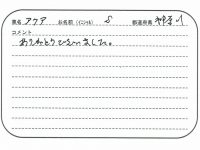 題名 アクア お名前(イニシャル) S 都道府県 神奈川
コメント
ありがとうございました。